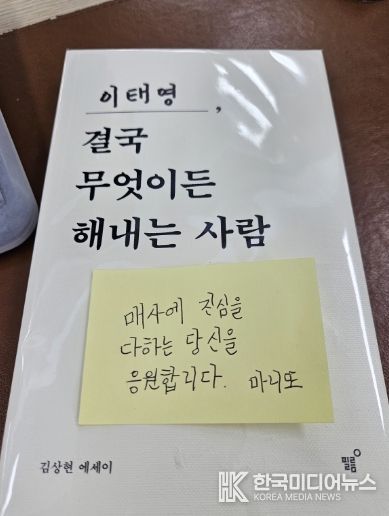 이태영,
결국
무엇이든
해내는 사람
매사에 진심을
다하는 당신을
응원합니다. 마니또
김상현 에세이
필름
한국미디어뉴스
KOREA MEDIA NEWS